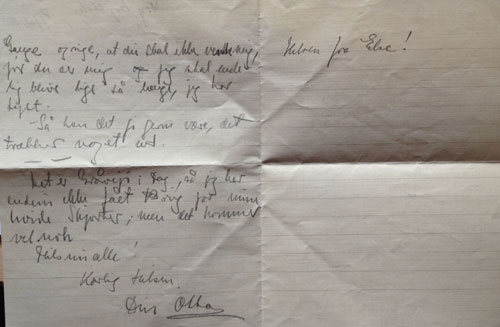 Gange og sige, at du skal ikke vente mig,
før du ser mig og jeg skal
blive lige så længe, jeg har
lyst.
- Så kan det jo gerne være, det
trækker noget ud.
Det er Gråvejr i Dag, så jeg har
endnu ikke fået Brug for mine
hvide Skjorter; men det kommer
vel nok.
Hils nu alle!
Kærlig Hilsen.
Din
Hilsen fra Else!